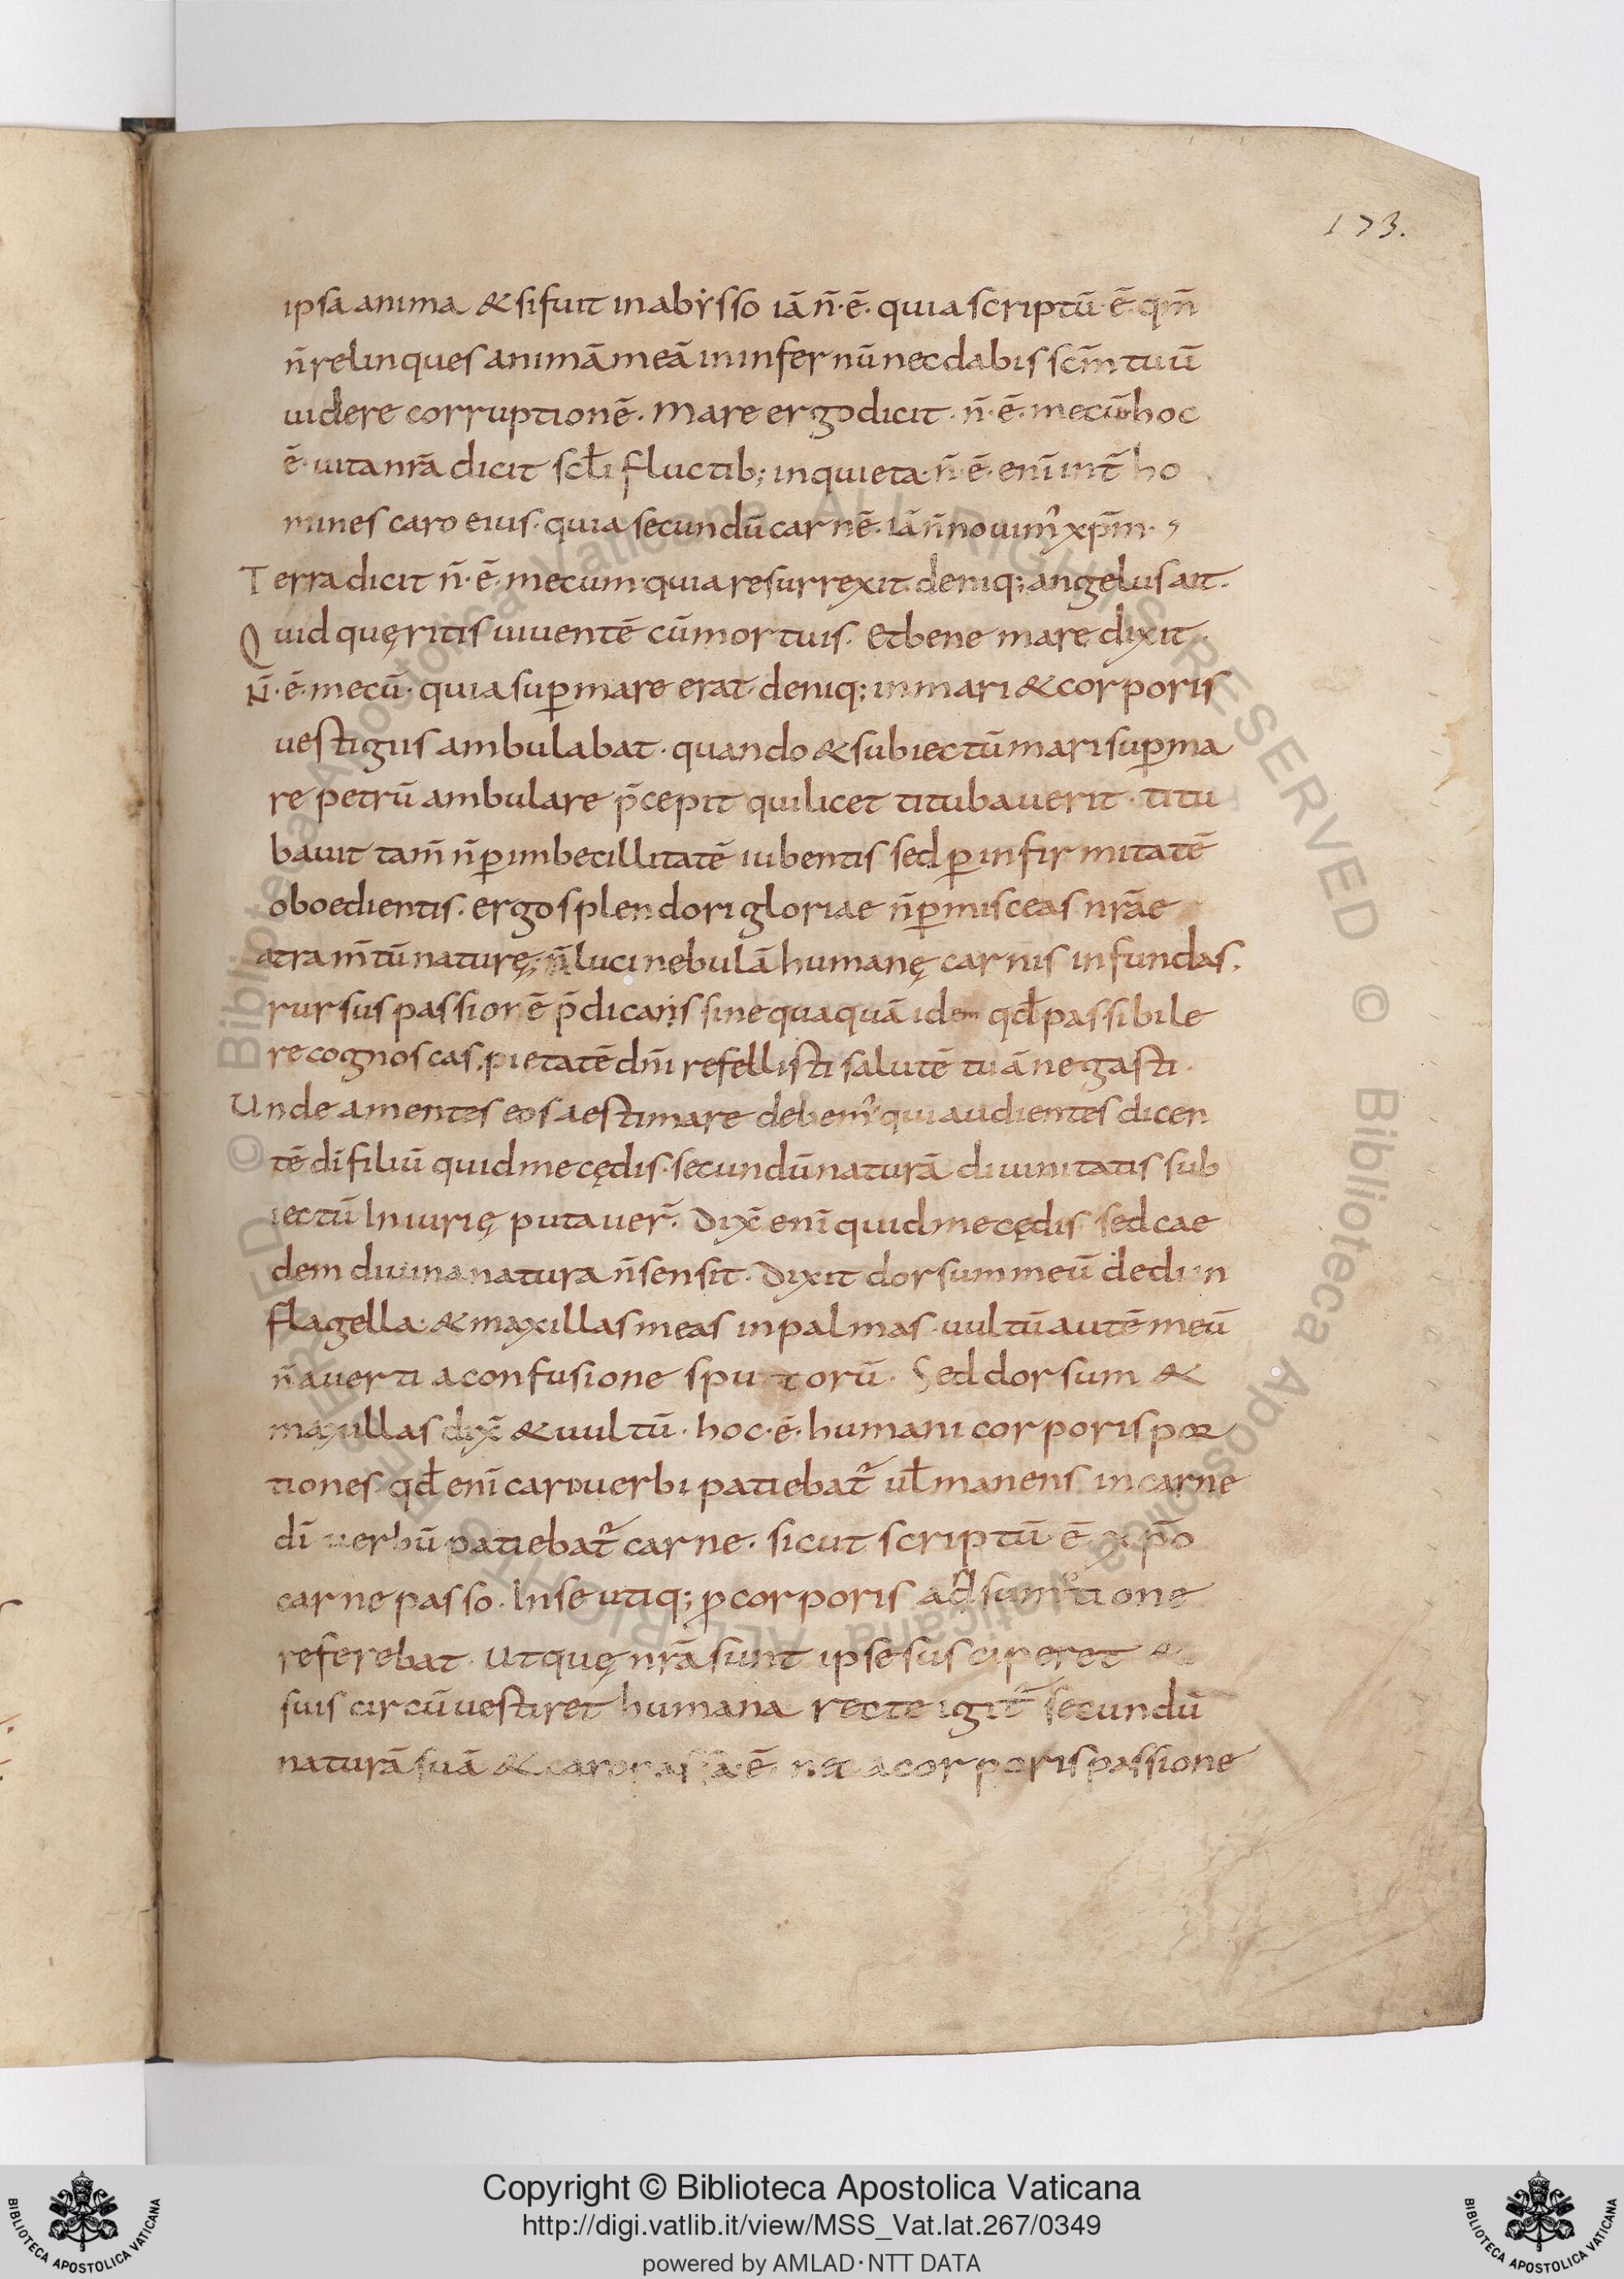 173.
ipsa anima & si fuit in abẏsso iā n̄·ē· quia scriptū·ē· qm̄
n̄ relinques animā meā in infernū nec dabis scm̄ tuū
uidere corruptionē. Mare ergo dicit· n̄·ē· mecū· hoc
ē· uita nrā dicit scłi fluctib; inquieta· n̄·ē· enī int̄ ho
mines caro eius· quia secundū carnē· iā n̄ nouim᾽ xpm̄·,
Terra dicit n̄·ē· mecum· quia resurrexit· deniq; angelus ait·
Quid quęritis uiuentē cū mortuis. Et bene mare dixit·
N̄·ē· mecū· quia suꝑ mare erat· deniq; in mari & corporis
uestigiis ambulabat· quando & subiectū mari suꝑ ma
re petrū ambulare p̄cepit qui licet titubauerit· titu
bauit tam̄ n̄ ꝑ imbecillitatē iubentis sed ꝑ infirmitatē
oboedientis. ergo splendori gloriae n̄ ꝑmisceas nrāe
atram̄tū naturę; n̄ luci nebulā humanę carnis infundas.
rursus passionē p̄dicans si nequaquā idem qd̄ passibile
recognoscas. pietatē dn̄i refellisti salutē tuā negasti·
Unde amentes eos aestimare debem᾽ qui audientes dicen
tē dī filiū quid me cędis· secundū naturā diuinitatis sub
iectū Iniurię putauer̄. Dix̄ enī quid me cędis sed cae
dem diuina natura n̄ sensit. Dixit dorsum meū dedi in
flagella· & maxillas meas in palmas· uultū autē meū
n̄ auerti a confusione sputorū. Sed dorsum &
maxillas dix̄ & uultū· hoc·ē· humani corporis por
tiones· qd̄ enī caro uerbi patiebat᾽ uł manens in carne
dī uerbū patiebat᾽ carne. sicut scriptū·ē· xp̄o
carne passo. In se utiq; ꝓ corporis adsumptione
referebat· Ut quę nrā sunt ipse susciperet &
suis circūuestiret humana recte igit᾽ secundū
naturā suā & caro passa·ē· nec a corporis passione
Copyright © Biblioteca Apostolica Vaticana
http://digi.vatlib.it/view/MSS_Vat.lat.267/0349
powered by AMLAD·NTT DATA
BIBLIOTECA APOSTOLICA VATICANA
BIBLIOTECA APOSTOLICA VATICANA